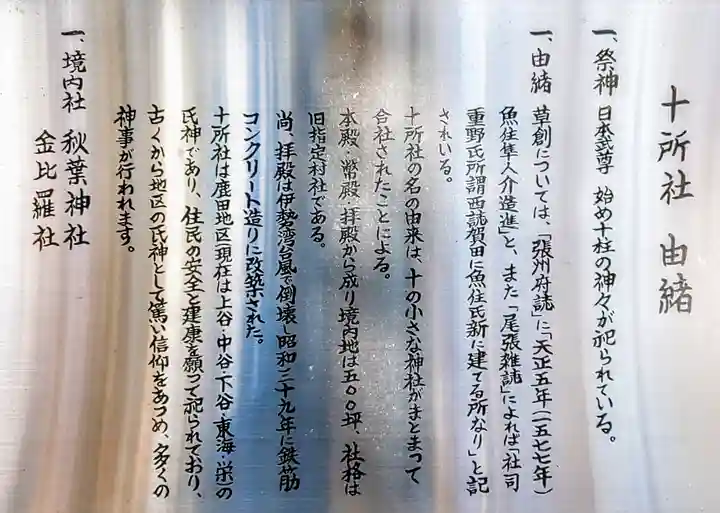 十所社 由緒
一、祭神 日本武尊 始め十柱の神々が祀られている。
一、由緒 草創については、「張州府誌」に「天正五年(一五七七年)
魚住隼人介造進」と、また「尾張雑誌」によれば「社司
重野氏所謂西誌賀田に魚住氏新に建てる所なり」と記
されいる。
十所社の名の由来は、十の小さな神社がまとまって
合社されたことによる。
本殿、幣殿、拝殿から成り境内地は五〇〇坪、社格は
旧指定村社である。
尚、拝殿は伊勢湾台風で倒壊し昭和三十九年に鉄筋
コンクリート造りに改築された。
十所社は鹿田地区(現在は上谷・中谷・下谷・東海・栄)の
氏神であり、住民の安全と健康を願って祀られており、
古くから地区の氏神として篤い信仰をあつめ、多くの
神事が行われます。
一、境内社 秋葉神社
金比羅社